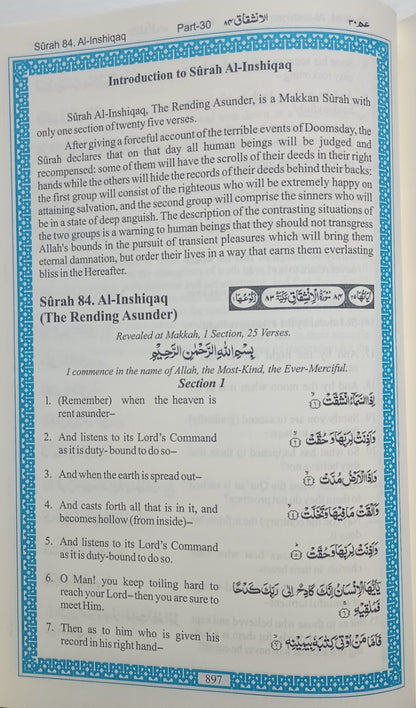 Sûrah 84. Al-Inshiqaq Part-30 الانشقاق ٨٤ عم ٣٠
Introduction to Sûrah Al-Inshiqaq
Sûrah Al-Inshiqaq, The Rending Asunder, is a Makkan Sûrah with
only one section of twenty five verses.
After giving a forceful account of the terrible events of Doomsday, the
Sûrah declares that on that day all human beings will be judged and
recompensed: some of them will have the scrolls of their deeds in their right
hands while the others will hide the records of their deeds behind their backs:
the first group will consist of the righteous who will be extremely happy on
attaining salvation, and the second group will comprise the sinners who will
be in a state of deep anguish. The description of the contrasting situations of
the two groups is a warning to human beings that they should not transgress
Allah's bounds in the pursuit of transient pleasures which will bring them
eternal damnation, but order their lives in a way that earns them everlasting
bliss in the Hereafter.
Sûrah 84. Al-Inshiqaq
(The Rending Asunder)
اٰیَاتُهَا ٢٥ ٨٤ سُوْرَةُ الْاِنْشِقَاقِ مَكِّیَّةٌ ٨٣ رُكُوْعُهَا ١
Revealed at Makkah, 1 Section, 25 Verses.
بِسْمِ اللهِ الرَّحْمٰنِ الرَّحِیْمِ
I commence in the name of Allah, the Most-Kind, the Ever-Merciful.
Section 1
1. (Remember) when the heaven is
rent asunder–
اِذَا السَّمَآءُ انْشَقَّتْ ۙ﴿١﴾
2. And listens to its Lord's Command
as it is duty- bound to do so–
وَ اَذِنَتْ لِرَبِّهَا وَ حُقَّتْ ۙ﴿٢﴾
3. And when the earth is spread out–
وَ اِذَا الْاَرْضُ مُدَّتْ ۙ﴿٣﴾
4. And casts forth all that is in it, and
becomes hollow (from inside)–
وَ اَلْقَتْ مَا فِیْهَا وَ تَخَلَّتْ ۙ﴿٤﴾
5. And listens to its Lord's Command
as it is duty-bound to do so.
وَ اَذِنَتْ لِرَبِّهَا وَ حُقَّتْ ؕ﴿٥﴾
6. O Man! you keep toiling hard to
reach your Lord– then you are sure to
meet Him.
یٰۤاَیُّهَا الْاِنْسَانُ اِنَّكَ كَادِحٌ اِلٰی رَبِّكَ كَدْحًا
فَمُلٰقِیْهِ ۚ﴿٦﴾
7. Then as to him who is given his
record in his right hand–
فَاَمَّا مَنْ اُوْتِیَ كِتٰبَهٗ بِیَمِیْنِهٖ ۙ﴿٧﴾
897